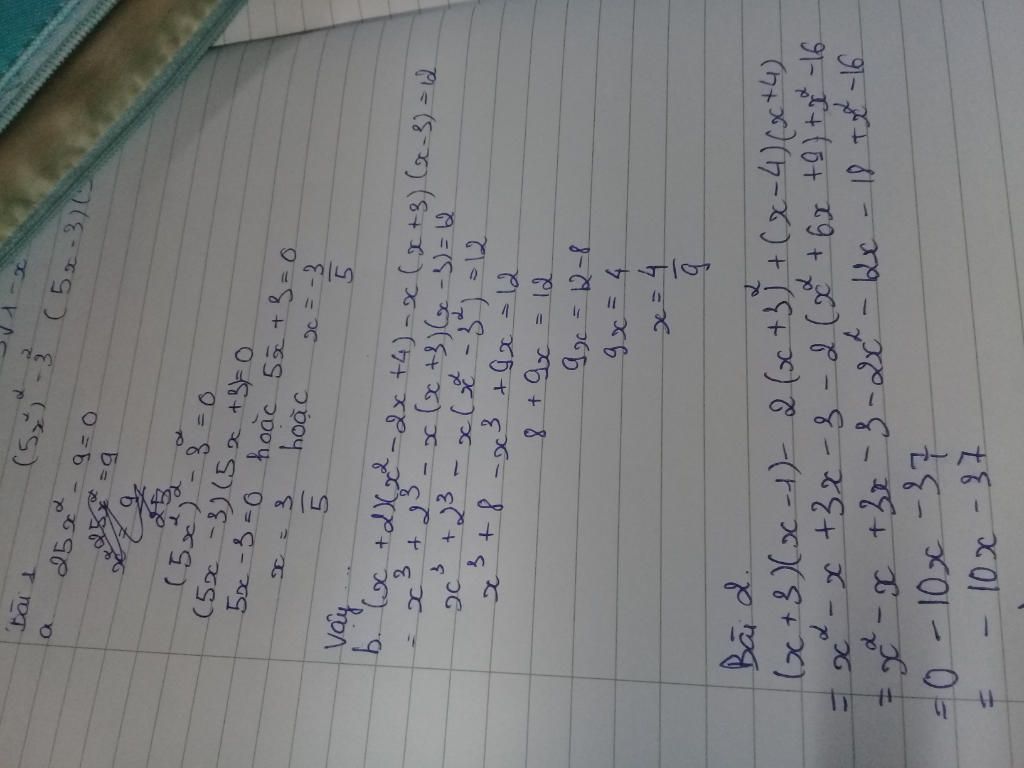 Bài 1
a 25x² - 9 = 0
(5x²)² - 3²
(5x - 3)(
25x² = 9
(5x)² - 3² = 0
(5x - 3)(5x + 3) = 0
5x - 3 = 0 hoặc 5x + 3 = 0
x = 3/5 hoặc x = -3/5
Vậy...
b. (x + 2)(x² - 2x + 4) - x(x + 3)(x - 3) = 12
= x³ + 2³ - x(x + 3)(x - 3) = 12
x³ + 2³ - x(x² - 3²) = 12
x³ + 8 - x³ + 9x = 12
8 + 9x = 12
9x = 12 - 8
9x = 4
x = 4/9
Bài 2.
(x + 3)(x - 1) - 2(x + 3)² + (x - 4)(x + 4)
= x² - x + 3x - 3 - 2(x² + 6x + 9) + x² - 16
= x² - x + 3x - 3 - 2x² - 12x - 18 + x² - 16
= 0 - 10x - 37
= - 10x - 37